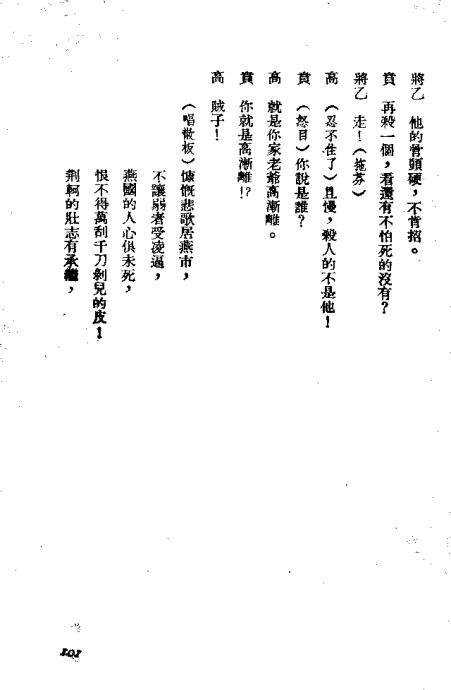 將乙　他的骨頭硬，不肯招。
賁　再殺一個，看還有不怕死的沒有？
將乙　走！（拖芬）
高　（忍不住了）且慢，殺人的不是他！
賁　（怒目）你說是誰？
高　就是你家老爺高漸離。
賁　你就是高漸離！？
高　賊子！
（唱散板）慷慨悲歌居燕市，
不讓弱者受凌逼，
燕國的人心俱未死，
恨不得萬刮千刀剝兒的皮！
荆軻的壯志有承繼，
101